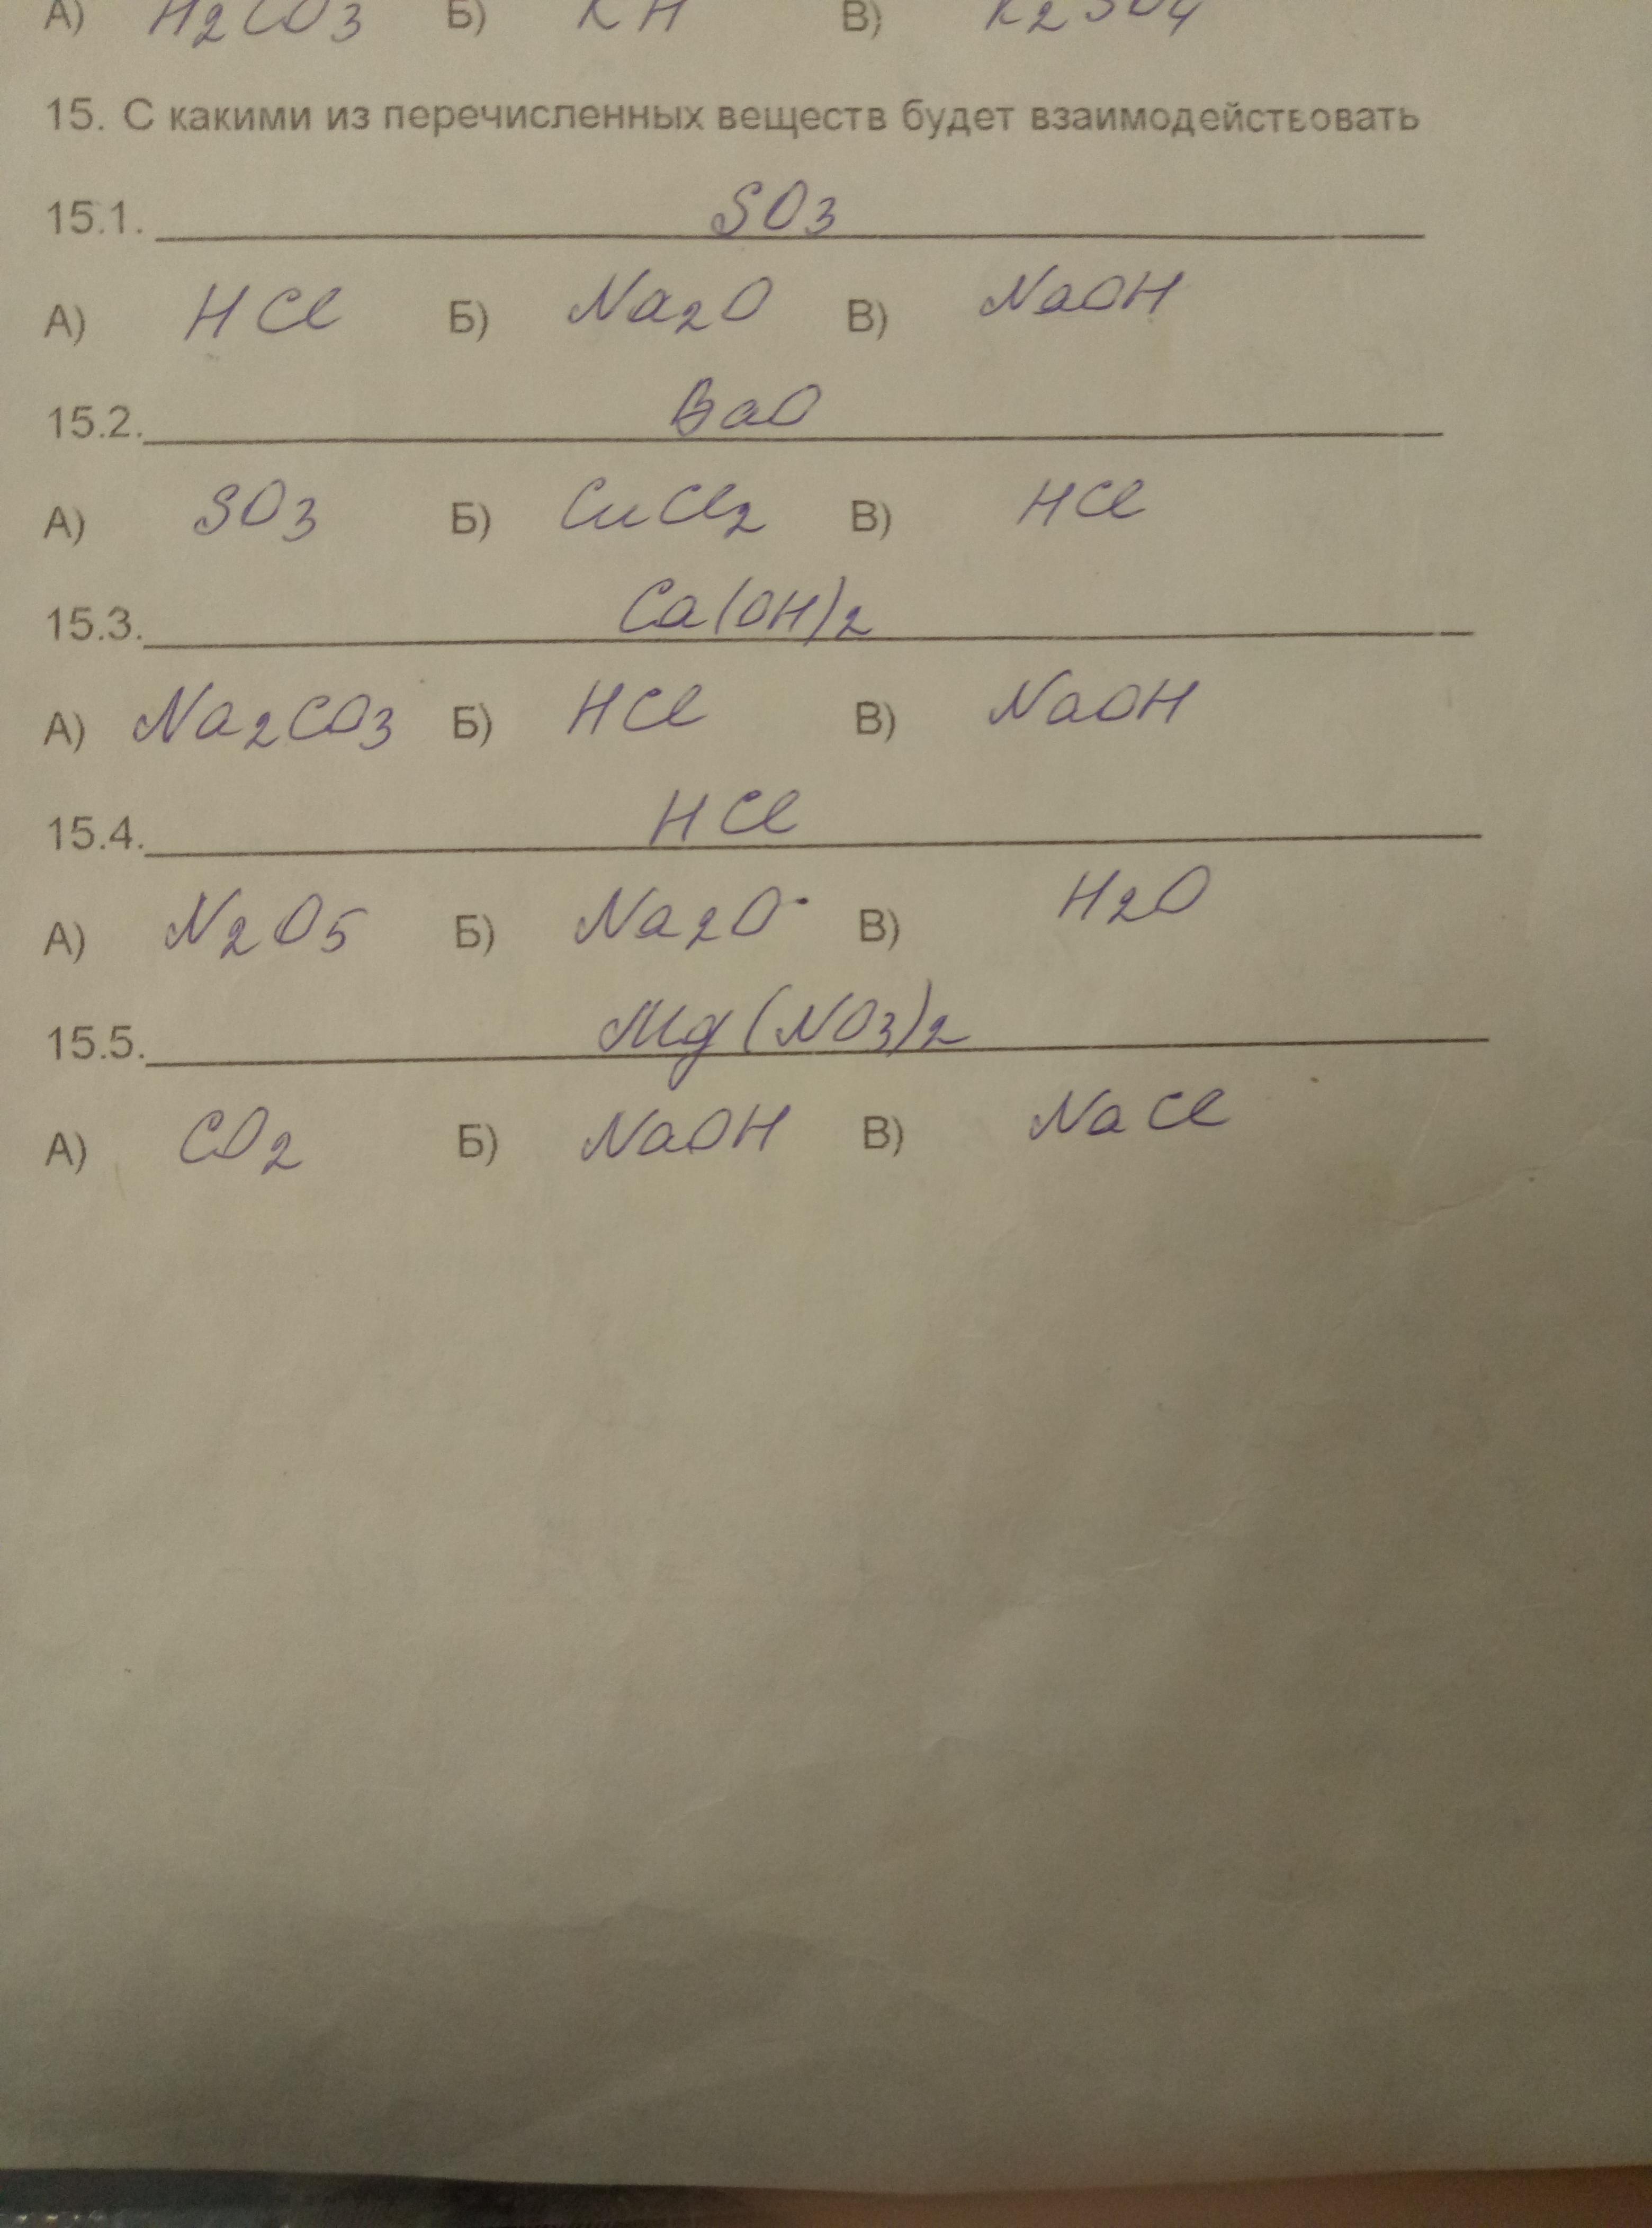 А) H2CO3 Б) KH В) K2SO4
15. С какими из перечисленных веществ будет взаимодействовать
15.1. SO3
А) HCl Б) Na2O В) NaOH
15.2. BaO
А) SO3 Б) CuCl2 В) HCl
15.3. Ca(OH)2
А) Na2CO3 Б) HCl В) NaOH
15.4. HCl
А) N2O5 Б) Na2O В) H2O
15.5. Mg(NO3)2
А) CO2 Б) NaOH В) NaCl